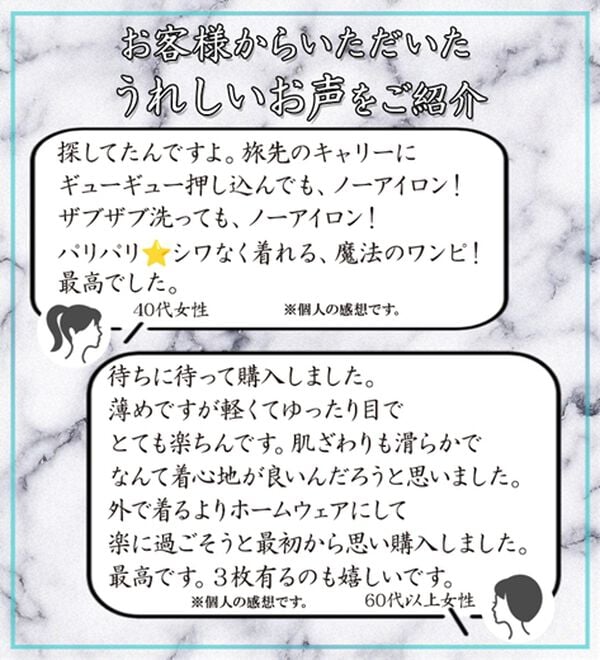 お客様からいただいた
うれしいお声をご紹介
探してたんですよ。旅先のキャリーに
ギューギュー押し込んでも、ノーアイロン！
ザブザブ洗っても、ノーアイロン！
パリパリ⭐シワなく着れる、魔法のワンピ！
最高でした。
40代女性
※個人の感想です。
待ちに待って購入しました。
薄めですが軽くてゆったり目で
とても楽ちんです。肌ざわりも滑らかで
なんて着心地が良いんだろうと思いました。
外で着るよりホームウェアにして
楽に過ごそうと最初から思い購入しました。
最高です。3枚有るのも嬉しいです。
※個人の感想です。
60代以上女性